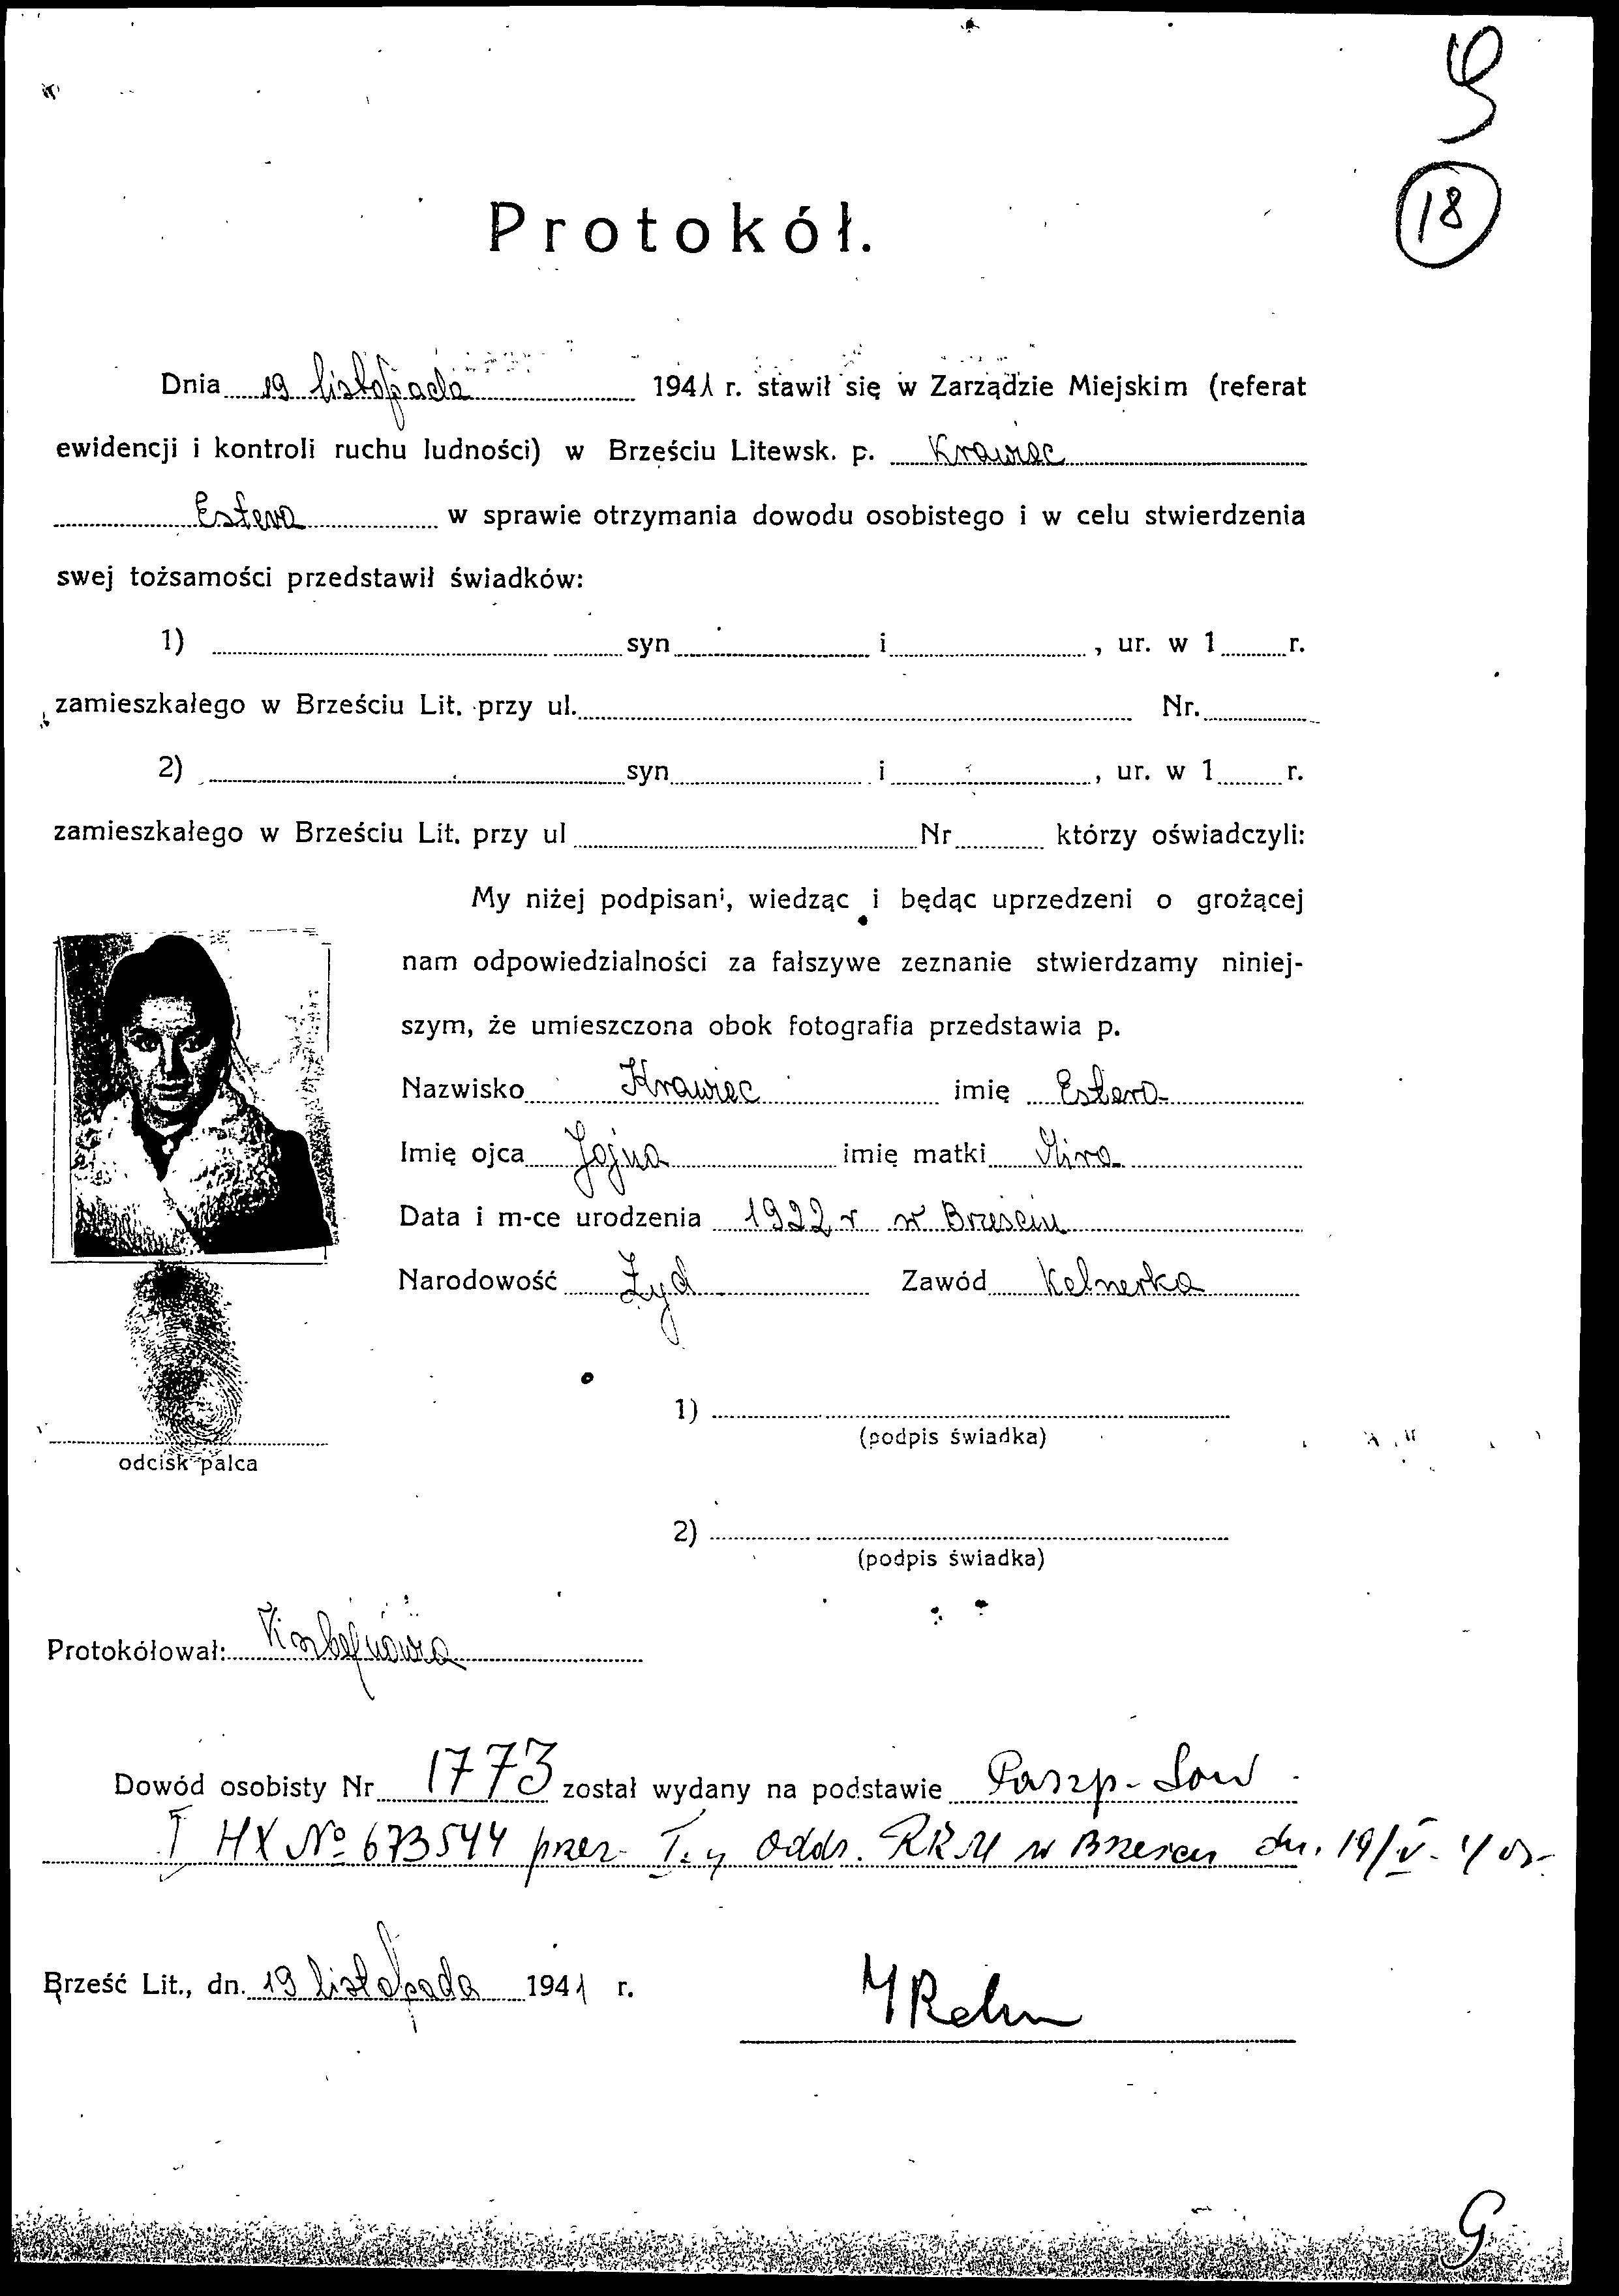 18
Protokół.
Dnia 19 listopada 1941 r. stawił się w Zarządzie Miejskim (referat
ewidencji i kontroli ruchu ludności) w Brześciu Litewsk. p. Krawiec
Estera w sprawie otrzymania dowodu osobistego i w celu stwierdzenia
swej tożsamości przedstawił świadków:
1) syn i , ur. w 1 r.
zamieszkałego w Brześciu Lit. przy ul. Nr.
2) syn i , ur. w 1 r.
zamieszkałego w Brześciu Lit. przy ul Nr którzy oświadczyli:
My niżej podpisani, wiedząc i będąc uprzedzeni o grożącej
nam odpowiedzialności za fałszywe zeznanie stwierdzamy niniej-
szym, że umieszczona obok fotografia przedstawia p.
Nazwisko Krawiec imię Estera
Imię ojca Jojna imię matki
Data i m-ce urodzenia 1922 r w Brześciu
Narodowość Żyd Zawód Kelnerka
1)
(podpis świadka)
odcisk palca
2)
(podpis świadka)
Protokółował:
Dowód osobisty Nr 1773 został wydany na podstawie Paszp. Sow
I HX № 673544 przez Oddz. RKM w Brześciu dn. 19/V
Brześć Lit., dn. 19 listopada 1941 r.